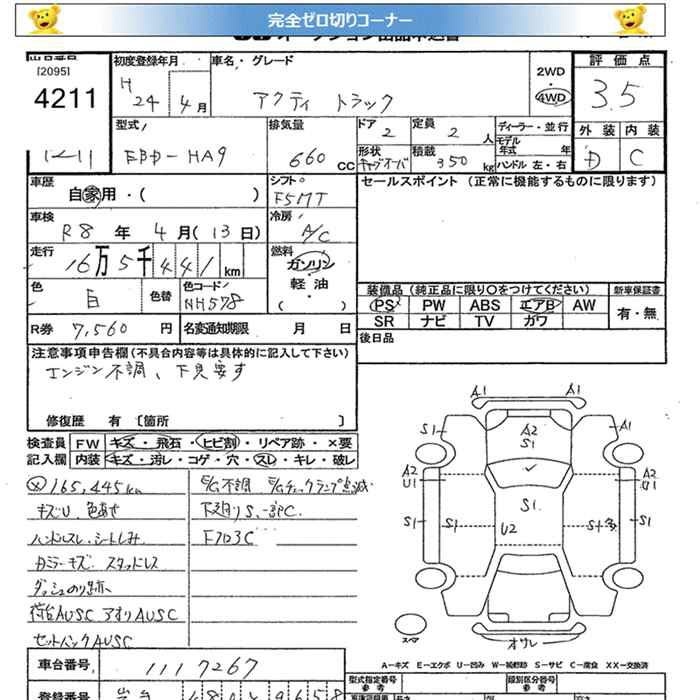 完全ゼロ切りコーナー
[2095]
4211
12-11
初度登録年月
H 24年 4月
車名・グレード
アクティ トラック
2WD・4WD
評価点
3.5
型式
EBD-HA9
排気量
660 CC
ドア
2
定員
2人
ディーラー・並行
モデル年式 年
外装 内装
D C
形状
キャブオーバ
積載
350 kg
ハンドル 左・右
車歴
自家用・( )
シフト
F5MT
セールスポイント (正常に機能するものに限ります)
車検
R8年 4月(13日)
冷房
A/C
走行
16万5千441km
燃料
ガソリン
軽油
・( )
色
白
色替
色コード
NH578
装備品(純正品に限り〇をつけてください)
PS PW ABS エアB AW
SR ナビ TV ガワ
新車保証書
有・無
R券 7,560円
名変通知期限 月 日
後日品
注意事項申告欄(不具合内容等は具体的に記入して下さい)
エンジン不調、下見要す
修復歴 有 〔箇所 〕
検査員記入欄
FW キズ・飛石・ヒビ割・リペア跡・×要
内装 キズ・汚レ・コゲ・穴・スレ・キレ・破レ
165,445km
キズU、色あせ
ハンドルスレ、シートしみ
カラーキズ スタッドレス
ダッシュのり跡
荷台AUSC アオリAUSC
セットバックAUSC
E/G不調 E/Gチェックランプ点滅
下廻りS、一部C
Fフロ3C
A1
A1
S1
A2
S1
A1
A2
U1
A2
U1
S1
S1
S1
U2
S1
スペア
オワレ
A-キズ E-エクボ U-凹み W-補修跡 S-サビ C-腐食 XX-交換済
車台番号
1117267
型式指定番号
参考
類別区分番号
参考
登録番号